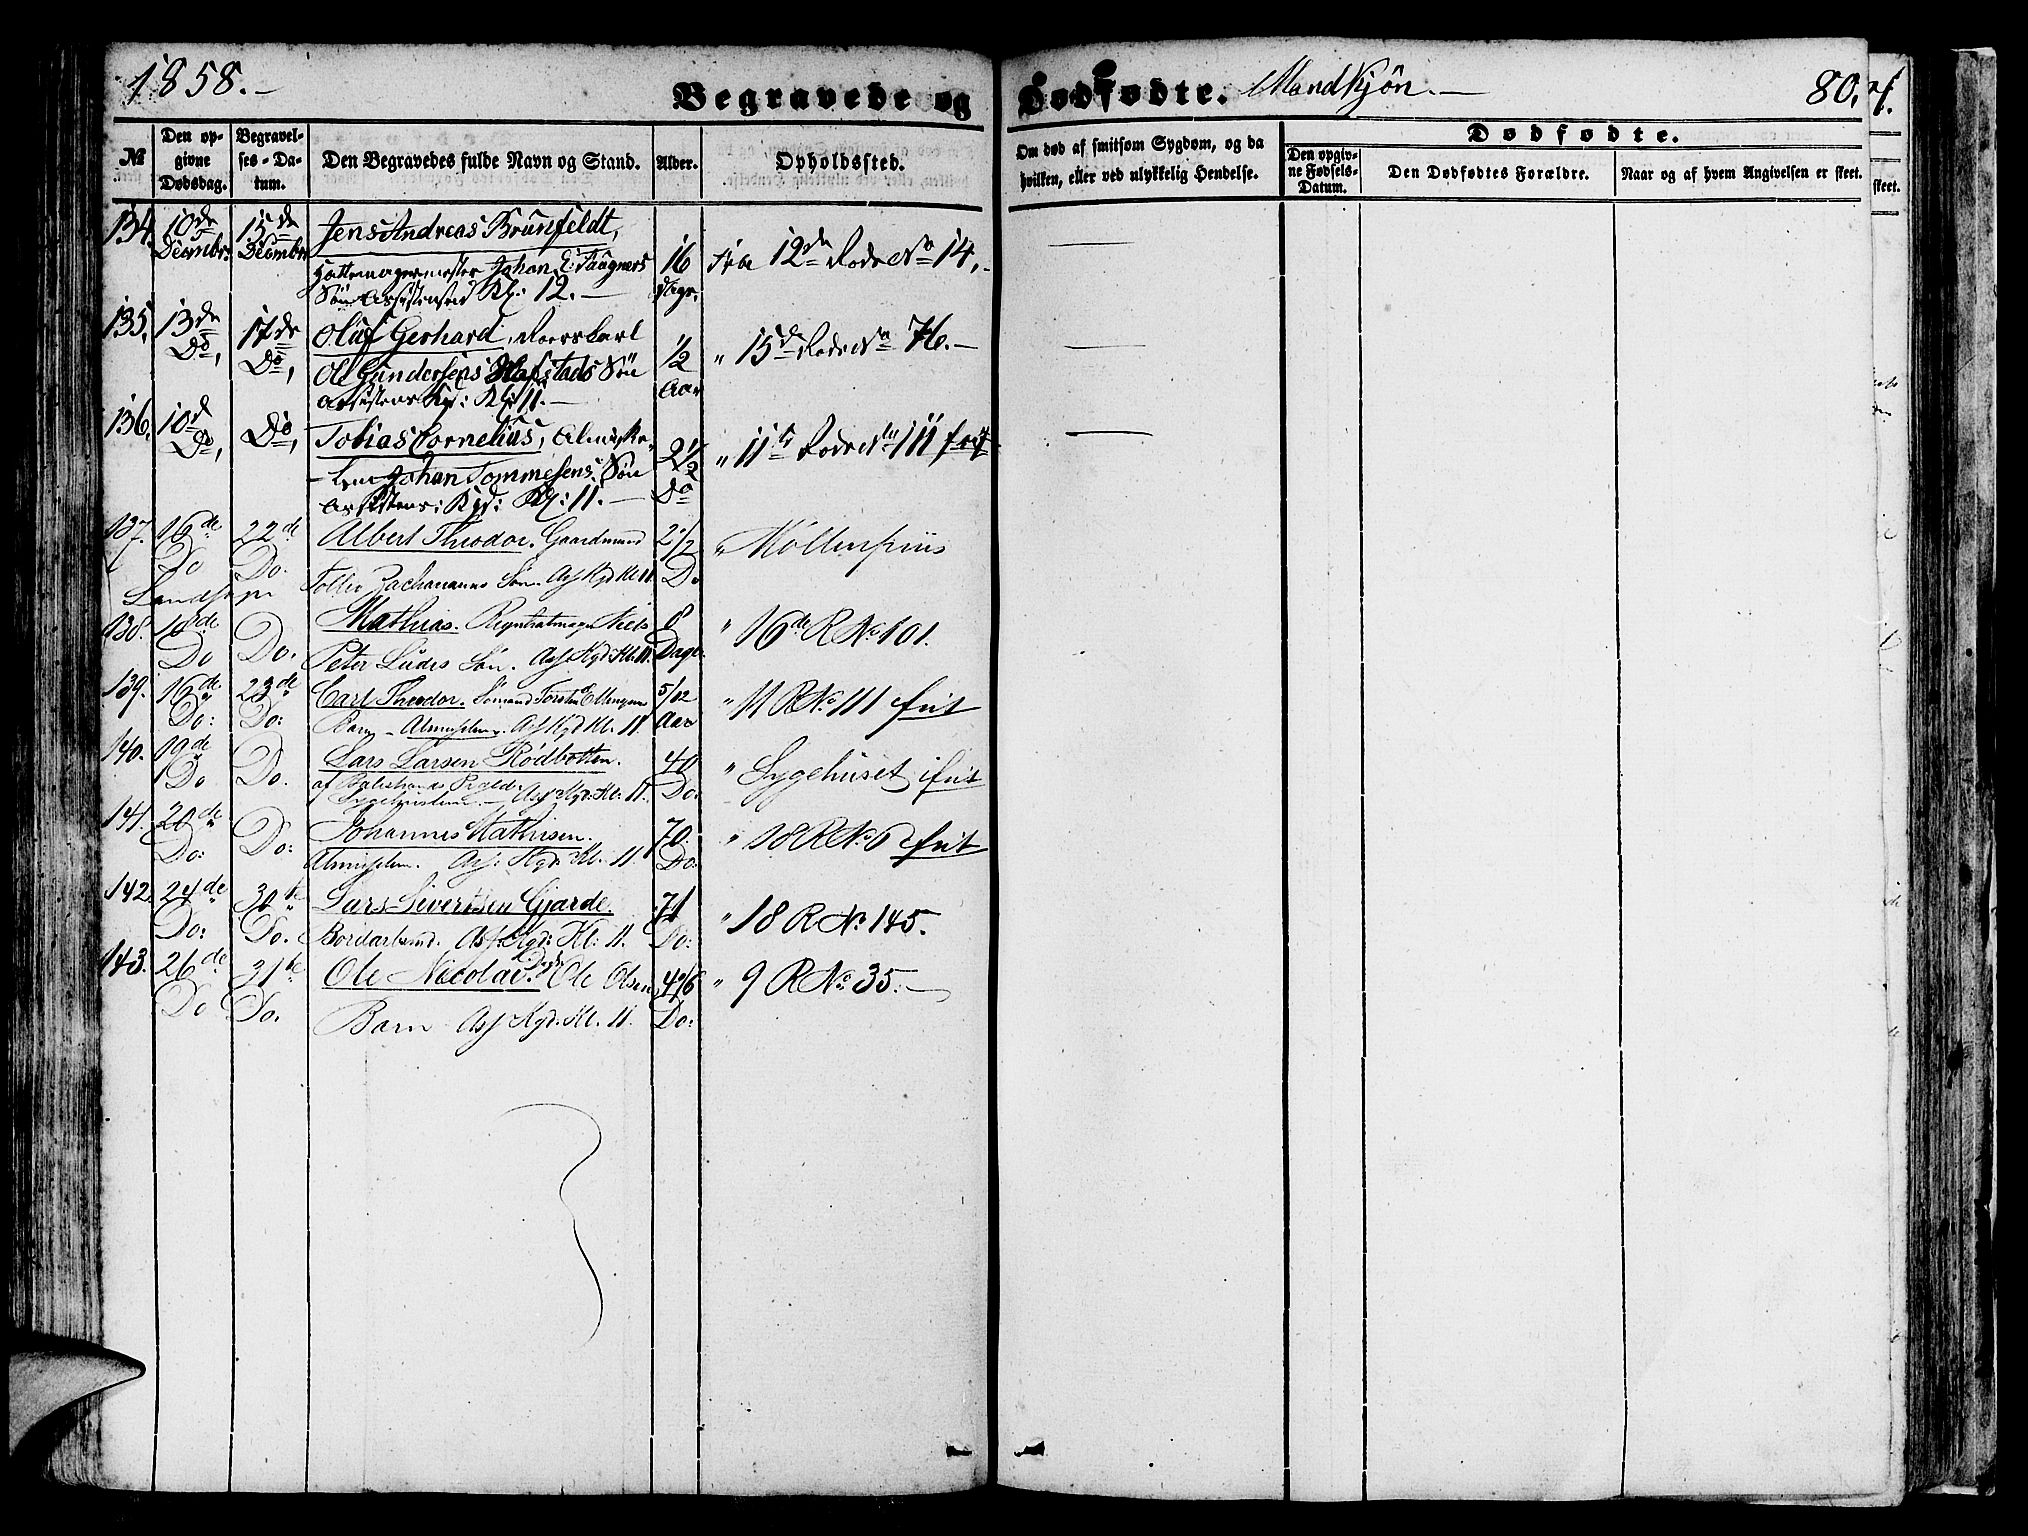 1858.
Begravede og Dødfødte. Mandkjøn.
80.
№
Den opgivne Dødsdag.
Begravelses-Datum.
Den Begravedes fulde Navn og Stand.
Alder.
Opholdssted.
Om død af smitsom Sygdom, og da
hvilken, eller ved ulykkelig Hendelse.
Dødfødte.
Den opgivne Fødsels-Datum.
Den Dødfødtes Forældre.
Naar og af hvem Angivelsen er skeet.
134. 10de 15de Jens Andreas Brunfeldt,
Decembr. Decembr. Hattemagermester Johan 16 12de Rode No 14.
Søn Kl: 12. Dage.
135. 13de 17de Oluf Gerhard,
Do, Do, Ole Gundersens Hafstads Søn 1/2 " 15de Rode No 76.
Kl: 11. Aar
136. 10de Do, Tobias Cornelius,
Do, Johan Tommesens Søn 2 1/2 " 11te Rode No 111 frit
Assistens: Kgd: Kl: 11. Do
137. 16de 22de Albert Theodor. Gaardmand 2 1/2
Do Do. Søn. Ass Kgd Kl 11. Do
138. 18de Mathias. Niels 8 " 16de R No 101.
Do Do. Peter Søn. Ass. Kgd: Kl: 11. Dage.
139. 16de 23de Carl Theodor. 5/12 " 11 R No 111 frit
Do: Do: Barn - Almisselem. Ass Kgd Kl. 11 Aar
140. 19de Lars Larsen Rødbotten. 40 " Sygehuset frit
Do Do. af Balestrands Ass Kgd: Kl: 11. Do:
141. 20de Johannes Mathisen. 70. " 18 R No 6 frit
Do: Do: Almisselem. Ass: Kgd: Kl: 11 Do:
142. 24de 30te Lars Sivertsen Gjærde. 71 " 18 R No 145.
Do: Do. Ass Kgd: Kl: 11. Do:
143. 26de 31te Ole Nicolai. Ole Olsen " 9 R No 35.
Do Do. Barn Ass Kgd: Kl. 11. Do: